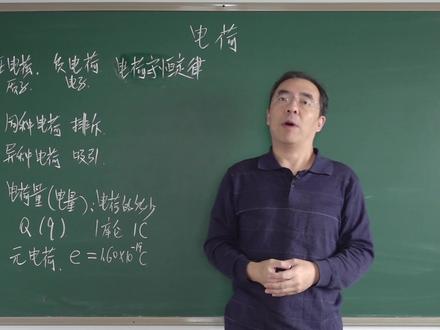 电荷
正电荷. 负电荷 电荷守恒定律
质子. 电子.
同种电荷 排斥.
异种电荷 吸引.
电荷量(电量):电荷的多少
Q (q) 1库仑 1C
元电荷. e=1.60×10⁻¹⁹C